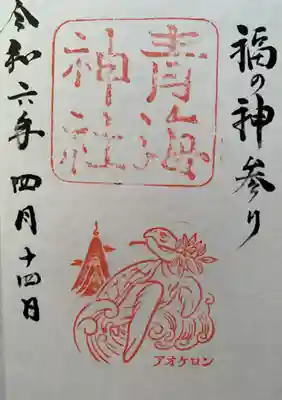 福の神参り
青海
神社
アオケロン
令和六年 四月 十四日